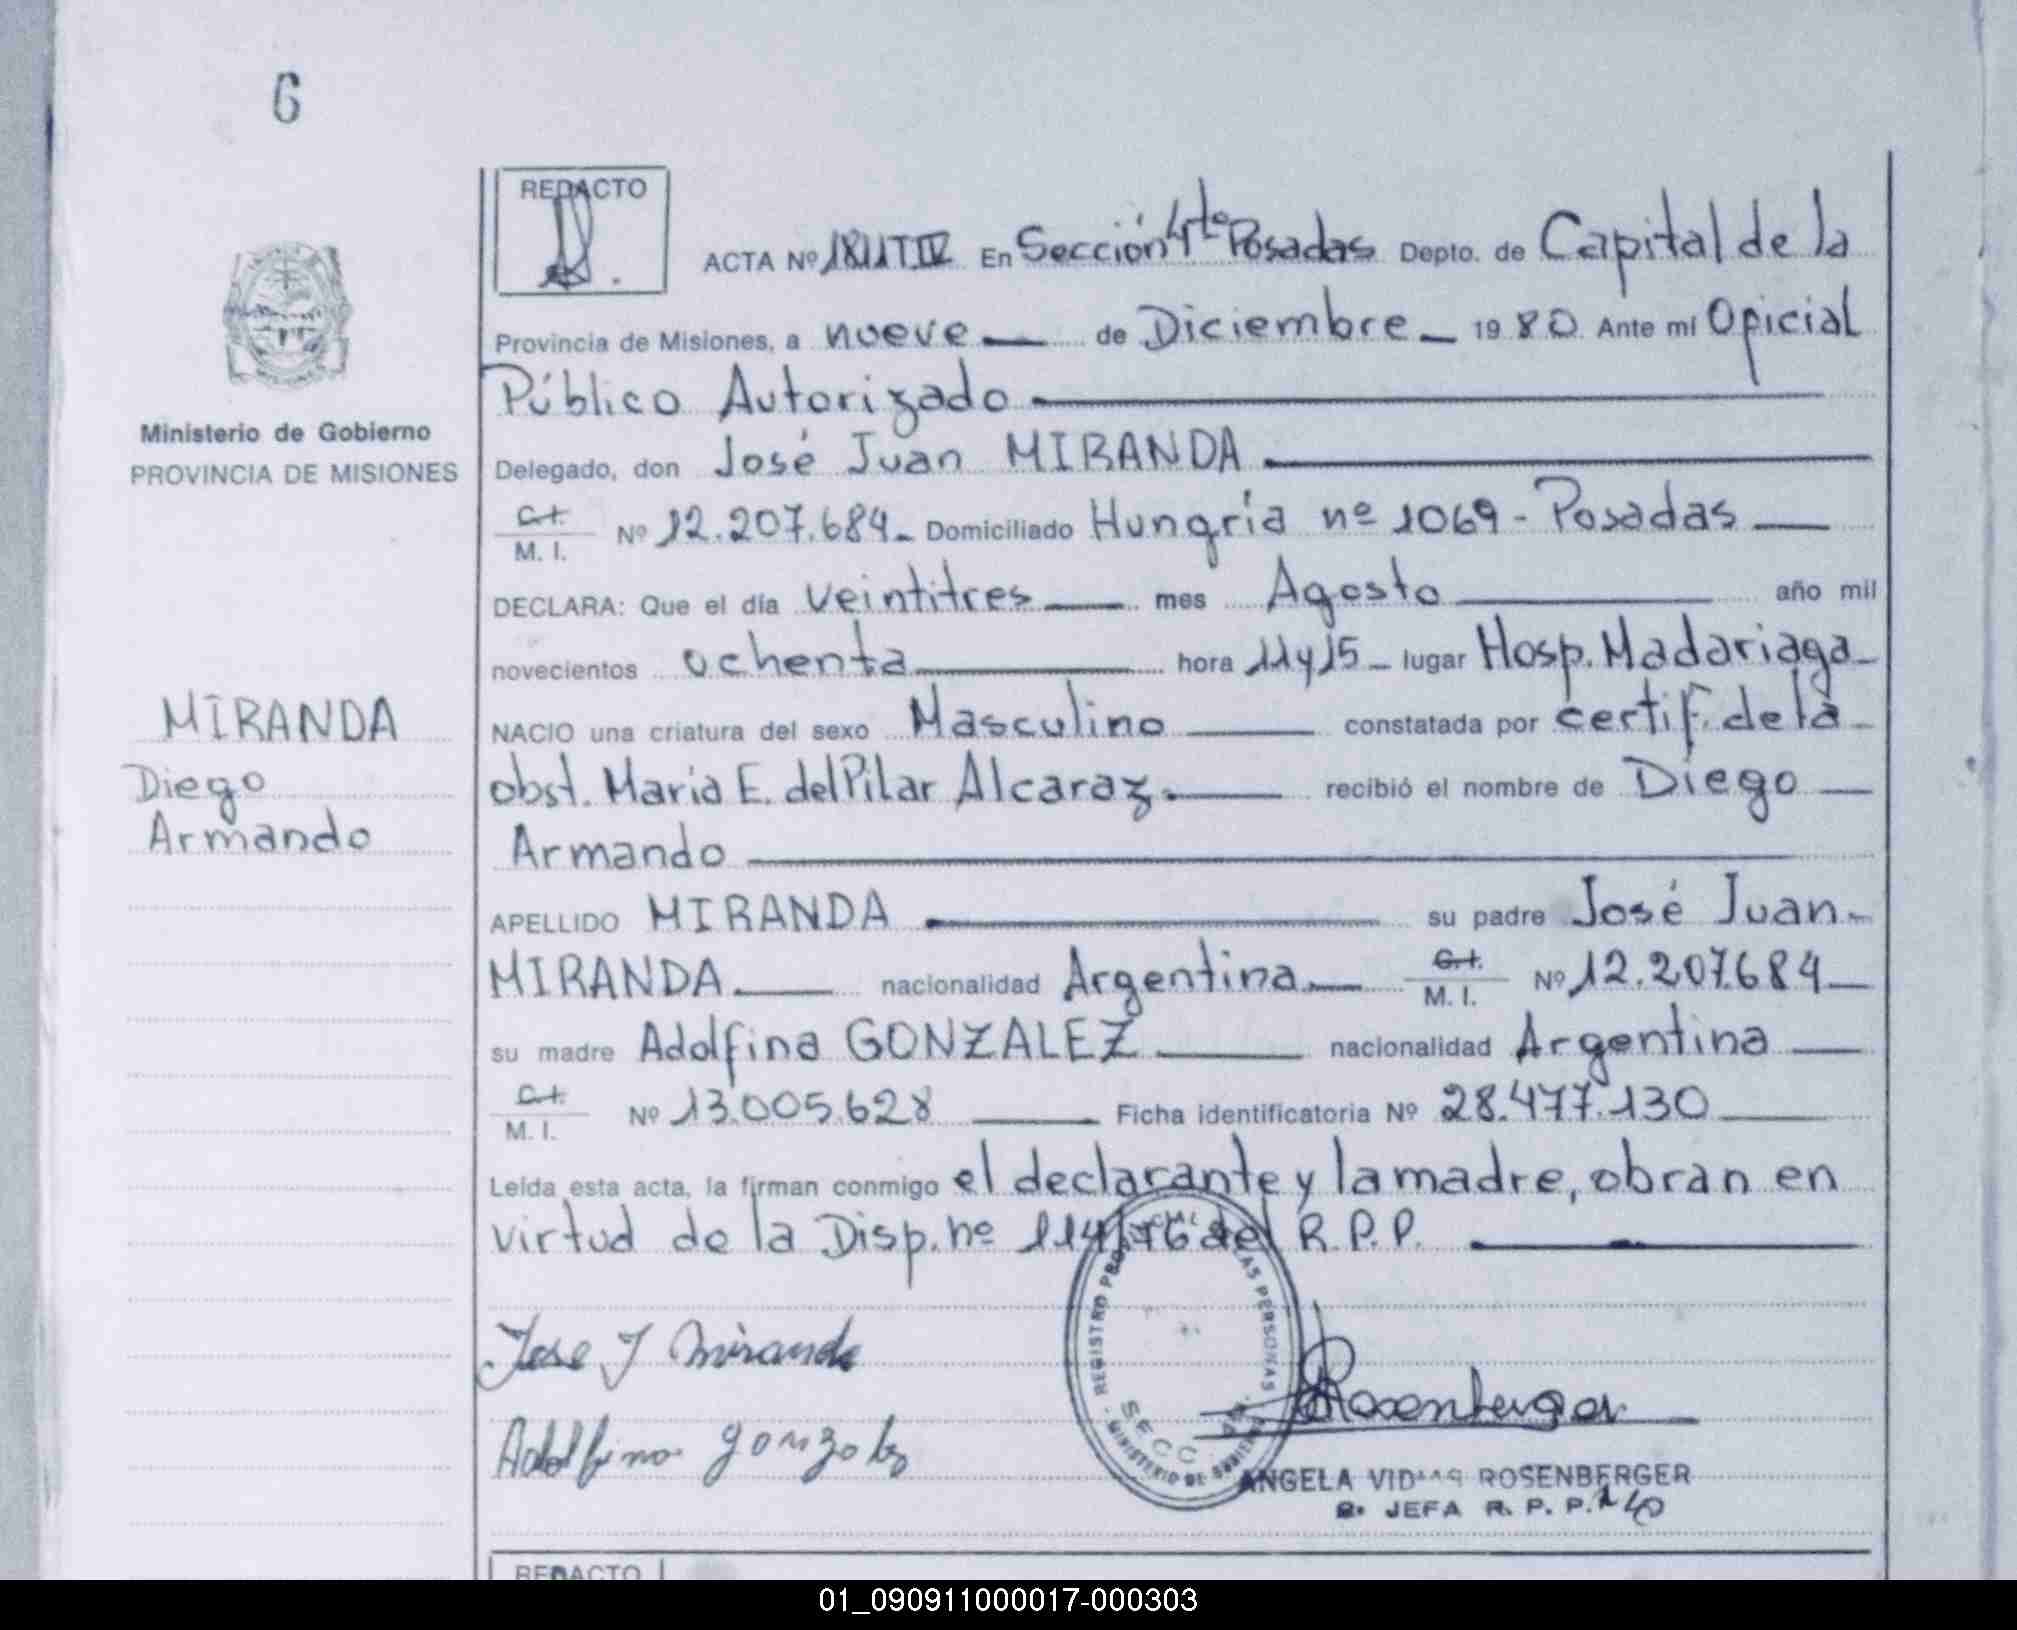 6
REDACTO
ACTA Nº 1811 T IV En Sección 4ta Posadas Depto. de Capital de la
Provincia de Misiones, a nueve de Diciembre 1980 Ante mí Oficial
Público Autorizado
Delegado, don José Juan MIRANDA
C.I.
M. I. Nº 12.207.684 Domiciliado Hungría nº 1069 - Posadas
DECLARA: Que el día veintitres mes Agosto año mil
novecientos ochenta hora 11 y 15 lugar Hosp. Madariaga
NACIO una criatura del sexo Masculino constatada por certif. de la
obst. Maria E. del Pilar Alcaraz. recibió el nombre de Diego
Armando
APELLIDO MIRANDA su padre José Juan
MIRANDA nacionalidad Argentina C.I. M. I. Nº 12.207.684
su madre Adolfina GONZALEZ nacionalidad Argentina
C.I.
M. I. Nº 13.005.628 Ficha identificatoria Nº 28.477.130
Leída esta acta, la firman conmigo el declarante y la madre, obran en
virtud de la Disp. nº 114/76 del R.P.P.
Ministerio de Gobierno
PROVINCIA DE MISIONES
MIRANDA
Diego
Armando
Jose J Miranda
Adolfina Gonzalez
REGISTRO LAS PERSONAS
SECC.
MINISTERIO DE GOBIERNO
Rosenberger
ANGELA ROSENBERGER
JEFA R. P. P.
REDACTO
01_090911000017-000303